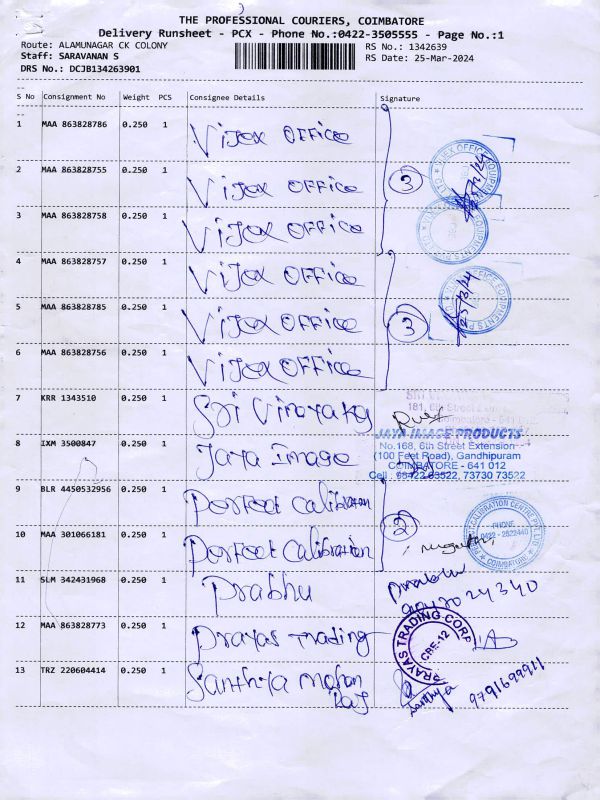 THE PROFESSIONAL COURIERS, COIMBATORE
Delivery Runsheet - PCX - Phone No.:0422-3505555 - Page No.:1
Route: ALAMUNAGAR CK COLONY
RS No.: 1342639
Staff: SARAVANAN S
RS Date: 25-Mar-2024
DRS No.: DCJB134263901
S No Consignment No Weight PCS Consignee Details Signature
1 MAA 863828786 0.250 1 Vijex OFFice
2 MAA 863828755 0.250 1 Vijex OFFice 3
3 MAA 863828758 0.250 1 Vijex OFFice
4 MAA 863828757 0.250 1 Vijex OFFice
5 MAA 863828785 0.250 1 Vijex OFFice 3 25/3/24
6 MAA 863828756 0.250 1 Vijex OFFice
7 KRR 1343510 0.250 1 Sri Vinayaka
181, 6th Street
8 IXM 3500847 0.250 1 Jaya Image
JAYA IMAGE PRODUCTS
No.168, 6th Street Extension
(100 Feet Road), Gandhipuram
COIMBATORE - 641 012
Cell : 98422 63522, 73730 73522
9 BLR 4450532956 0.250 1 Perfect Calibration 2
PHONE
0422 - 2522440
10 MAA 301066181 0.250 1 Perfect Calibration
11 SLM 342431968 0.250 1 Prabhu Prabhu
12 MAA 863828773 0.250 1 Prayas Trading
PRAYAS TRADING CORP
CBE-12
13 TRZ 220604414 0.250 1 Santhya Mohan Raj
Santhya 9791699911